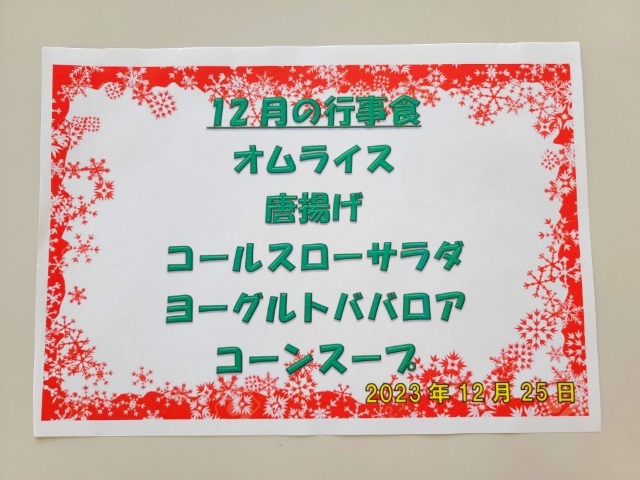 12月の行事食
オムライス
唐揚げ
コールスローサラダ
ヨーグルトババロア
コーンスープ
2023年12月25日